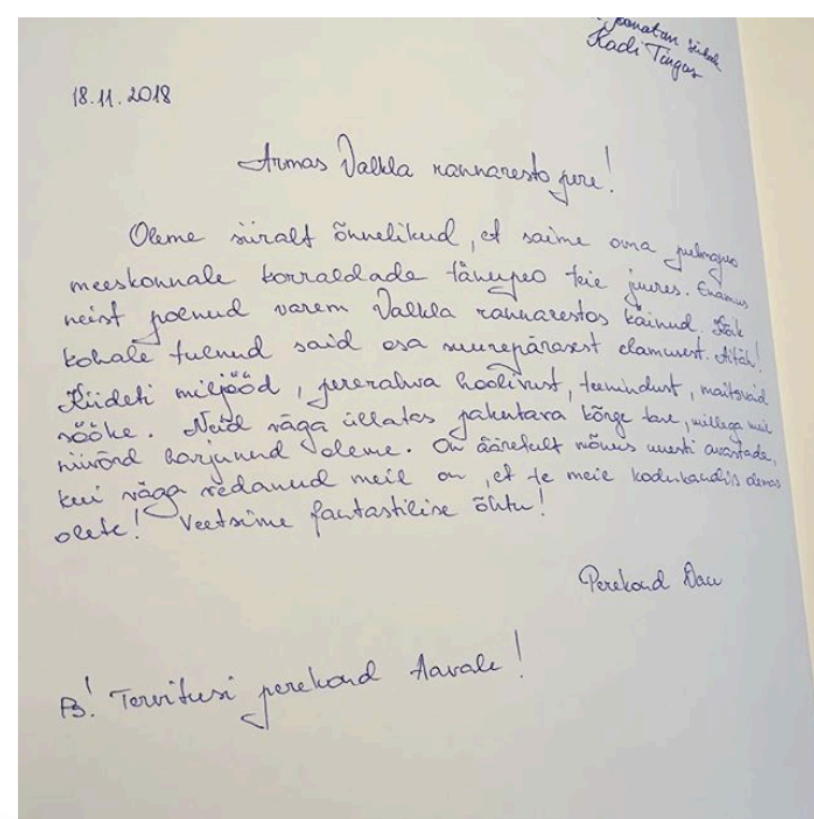 Kadi Tingas
18.11.2018
Armas Valkla rannaresto pere!
Oleme siiralt õnnelikud, et saime oma pulmapeo
meeskonnale korraldada tänupeo teie juures. Enamus
neist polnud varem Valkla rannarestos käinud. Kõik
kohale tulnud said osa suurepärasest elamusest. Aitäh!
Kiideti miljööd, pererahva hoolivust, teenindust, maitsvaid
sööke. Neid väga üllatas pakutava kõrge tase, millega meie
niivõrd harjunud oleme. On ääretult mõnus uuesti avastada,
kui väga vedanud meil on, et te meie kodukandis olemas
olete! Veetsime fantastilise õhtu!
Perekond
Tervitusi perekond Aavale!